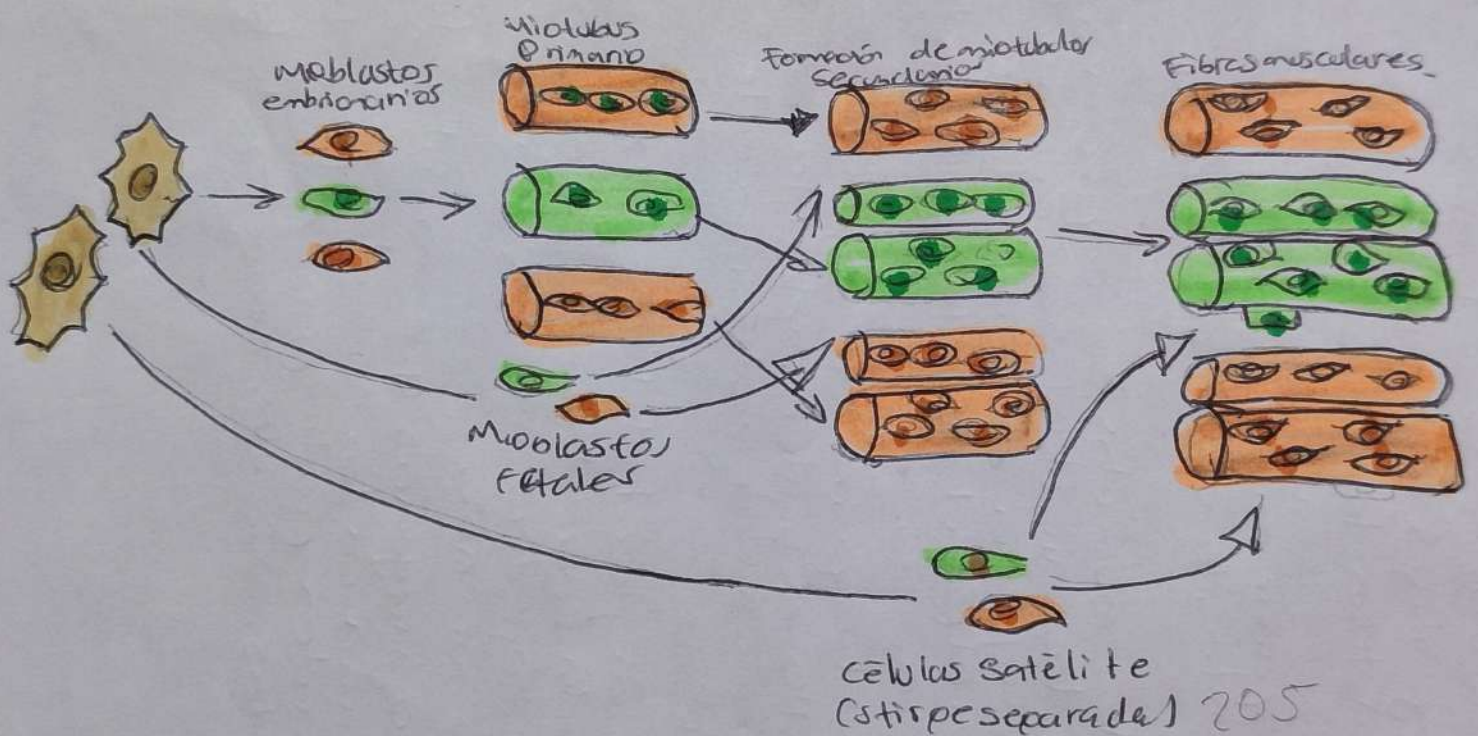 Mioblastos
embrionarios
Miotubus
Primario
Formación de miotubulos
secundarios
Fibras musculares
Mioblastos
Fetales
células satélite
(stirpe separada) 205